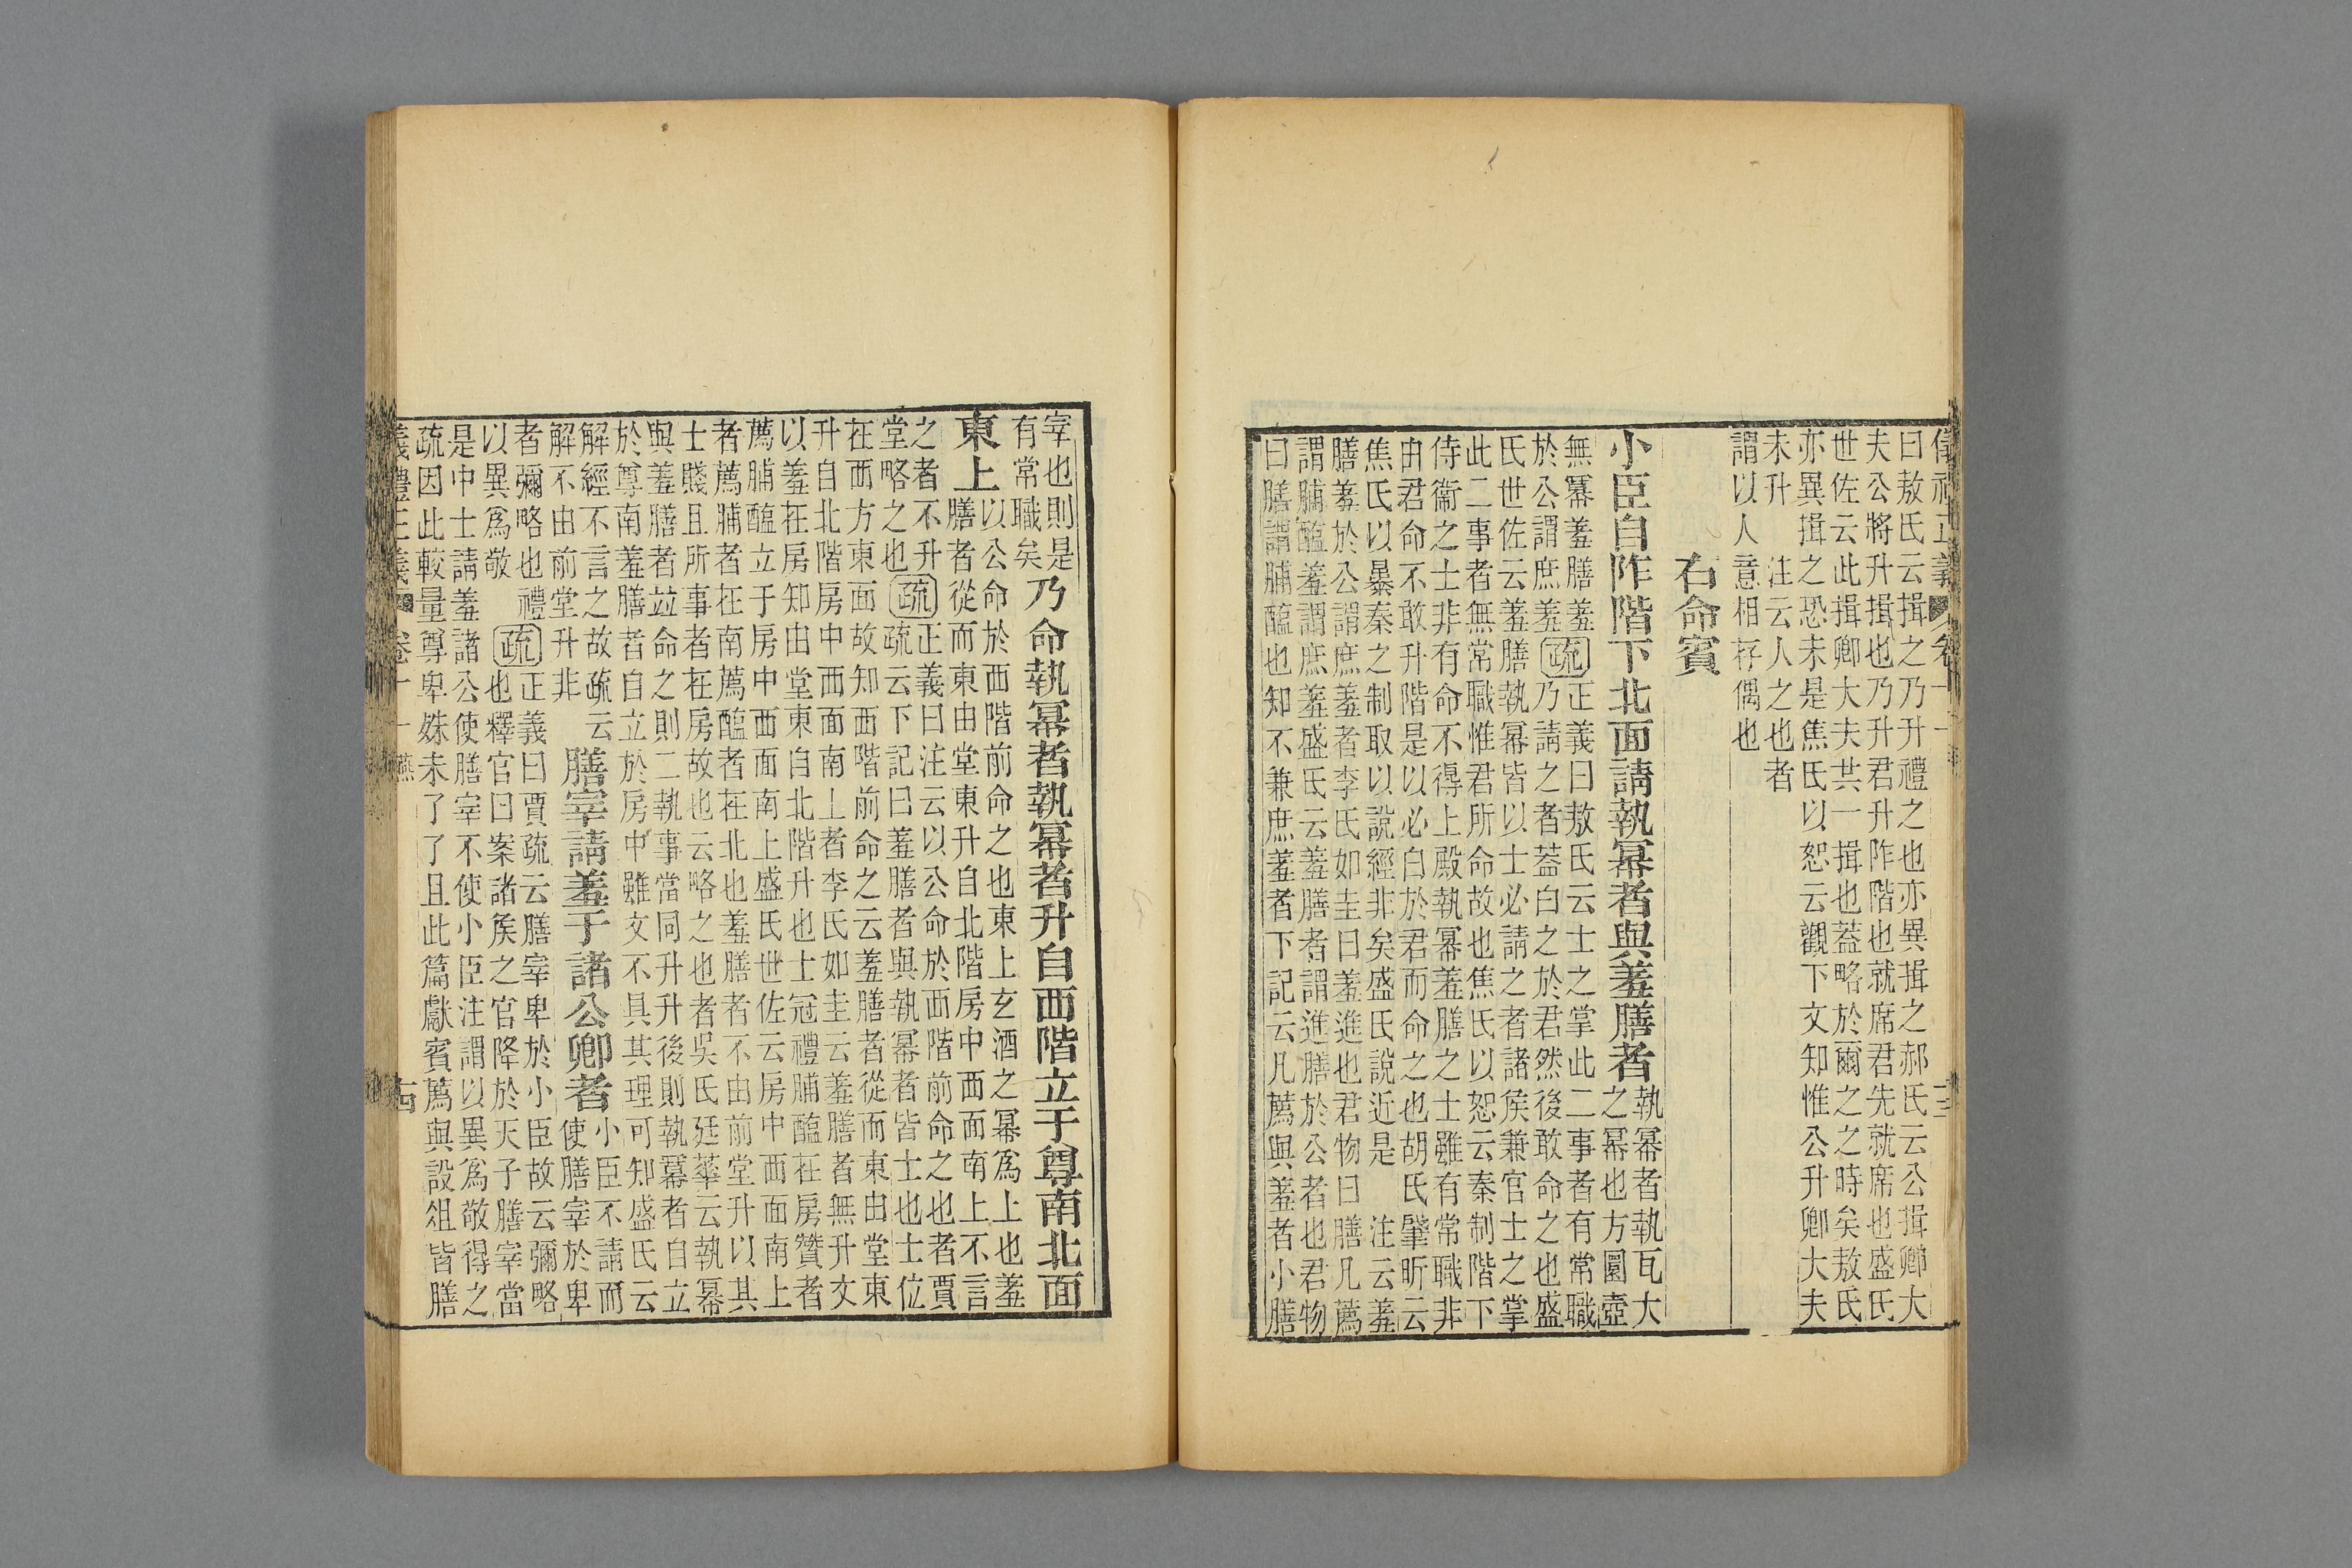 儀禮正義 卷十一 燕 十三
曰敖氏云揖之乃升禮之也亦異揖之郝氏云公揖卿大
夫公將升揖也乃升君升阼階也就席君先就席也盛氏
世佐云此揖卿大夫共一揖也蓋略於爾之之時矣敖氏
亦異揖之恐未是焦氏以恕云觀下文知惟公升卿大夫
未升 注云人之也者
謂以人意相存偶也
右命賓
小臣自阼階下北面請執冪者與羞膳者
執冪者執瓦大
之冪也方圜壺
無冪羞膳羞
於公謂庶羞
疏
正義曰敖氏云士之掌此二事者有常職
乃請之者蓋白之於君然後敢命之也盛
氏世佐云羞膳執冪皆以士必請之者諸侯兼官士之掌
此二事者無常職惟君所命故也焦氏以恕云秦制階下
侍衞之士非有命不得上殿執冪羞膳之士雖有常職非
由君命不敢升階是以必白於君而命之也胡氏肇昕云
焦氏以暴秦之制取以說經非矣盛氏說近是 注云羞
膳羞於公謂庶羞者李氏如圭曰羞進也君物曰膳凡薦
謂脯醢羞謂庶羞盛氏云羞膳者謂進膳於公者也君物
曰膳謂脯醢也知不兼庶羞者下記云凡薦與羞者小膳
宰也則是
有常職矣
乃命執冪者執冪者升自西階立于尊南北面
東上
以公命於西階前命之也東上玄酒之冪爲上也羞
膳者從而東由堂東升自北階房中西面南上不言
之者不升
堂略之也
疏
正義曰注云以公命於西階前命之也者賈
疏云下記曰羞膳者與執冪者皆士也士位
在西方東面故知西階前命之云羞膳者從而東由堂東
升自北階房中西面南上者李氏如圭云羞膳者無升文
以羞在房知由堂東自北階升也士冠禮脯醢在房贊者
薦脯醢立于房中西面南上盛氏世佐云房中西面南上
者薦脯者在南薦醢者在北也羞膳者不由前堂升以其
士賤且所事者在房故也云略之也者吳氏廷華云執冪
與羞膳者竝命之則二執事當同升升後則執冪者自立
於尊南羞膳者自立於房中雖文不具其理可知盛氏云
解經不言之故疏云
解不由前堂升非
膳宰請羞于諸公卿者
小臣不請而
使膳宰於卑
者彌略也禮
以異爲敬
疏
正義曰賈疏云膳宰卑於小臣故云彌略
也釋官曰案諸侯之官降於天子膳宰當
是中士請羞諸公使膳宰不使小臣注謂以異爲敬得之
疏因此較量尊卑殊未了了且此篇獻賓薦與設俎皆膳
義禮正義 卷十一 燕 十四